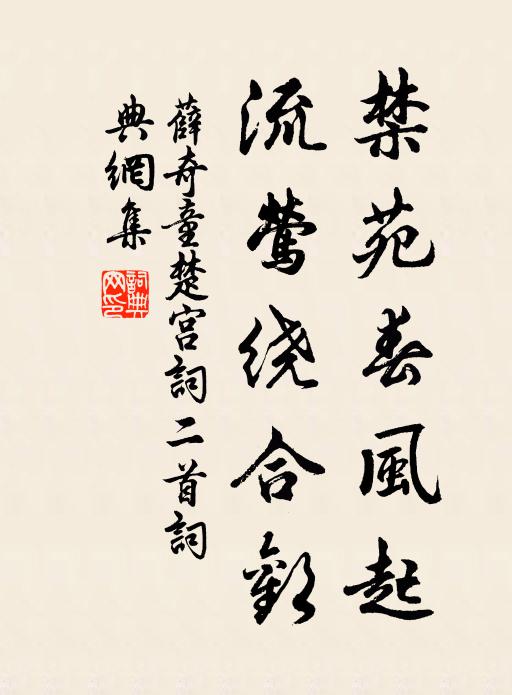 禁苑春風起
流鶯绕合歡
薛奇童楚宫詞二首詞
典網集
詞典网印